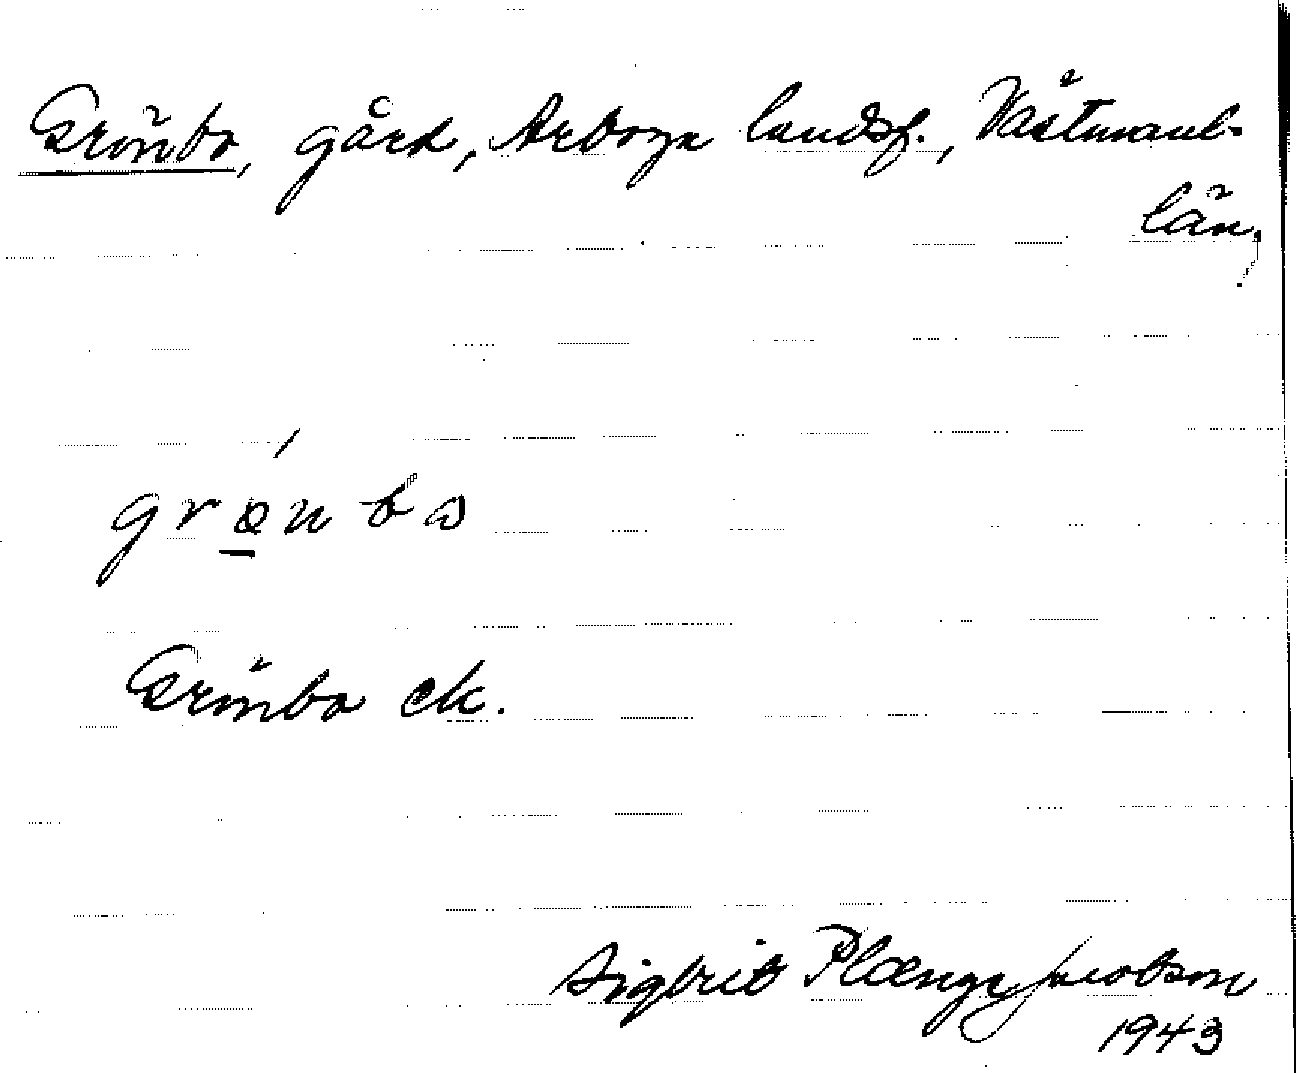 Grönbo, gård, Arboga landsf., Västmanl.
län,
grønbω
Grönbo ek.
Sigbrit Plænge Jacobson
1943